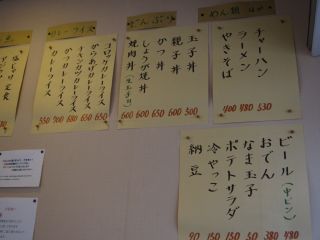 めん類 ほか
チャーハン 530
ラーメン 480
やきそば 400
どんぶり
玉子丼
親子丼 650
かつ丼 650
しょうが焼丼 600
焼肉丼 (生玉子付) 600
カレーライス
コロッケカレーライス 650
からあげカレーライス 650
チキンカツカレーライス 680
かつカレーライス
カレーライス
定食
ビール (中ビン) 480
おでん 380
なま玉子 50
ポテトサラダ 150
冷やっこ 150
納豆 90